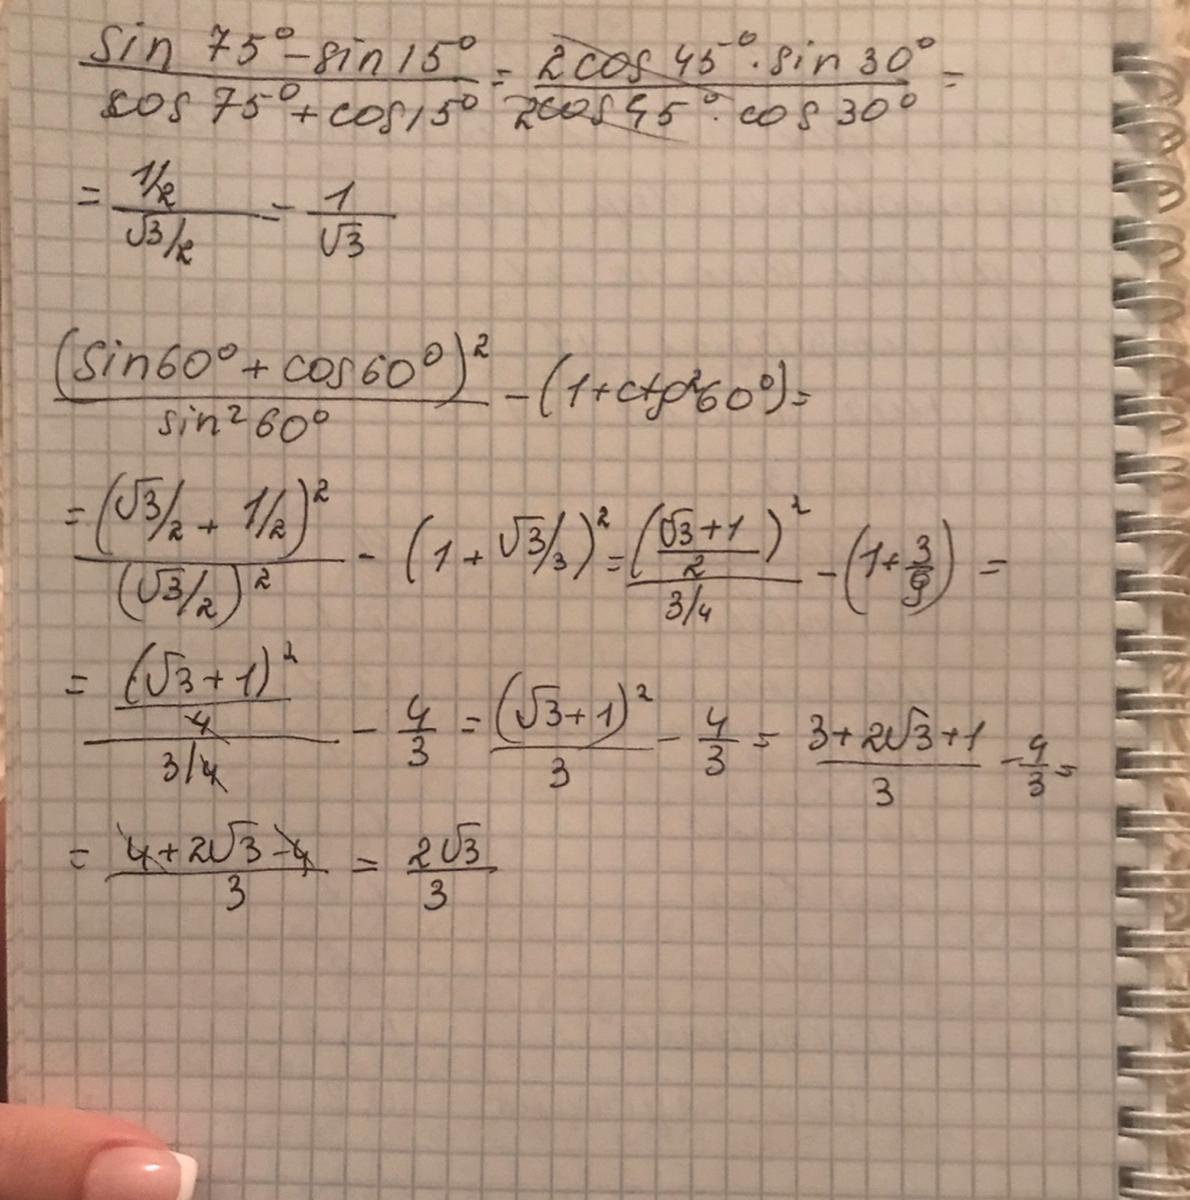 (sin 75° - sin 15°)/(cos 75° + cos 15°) = (2cos 45° · sin 30°)/(2cos 45° · cos 30°) =
= (1/2)/(√3/2) = 1/√3
(sin60° + cos60°)²/sin²60° - (1 + ctg²60°) =
= (√3/2 + 1/2)²/(√3/2)² - (1 + √3/3)² = ((√3+1)/2)²/(3/4) - (1 + 3/9) =
= ((√3+1)²/4)/(3/4) - 4/3 = (√3+1)²/3 - 4/3 = (3+2√3+1)/3 - 4/3 =
= (4+2√3-4)/3 = 2√3/3